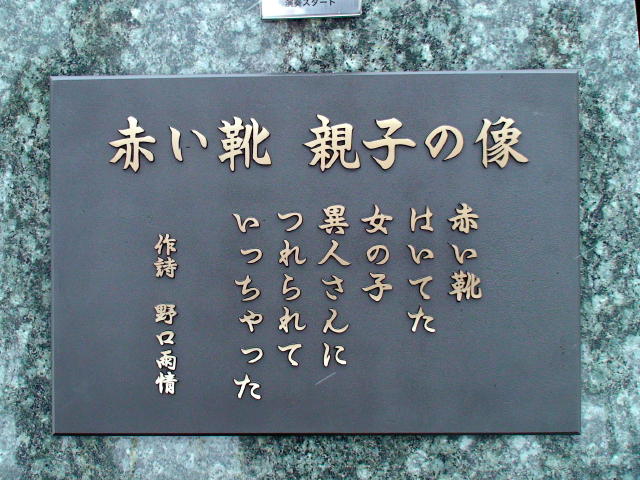 演奏スタート
赤い靴 親子の像
赤い靴
はいてた
女の子
異人さんに
つれられて
いっちゃった
作詩 野口雨情